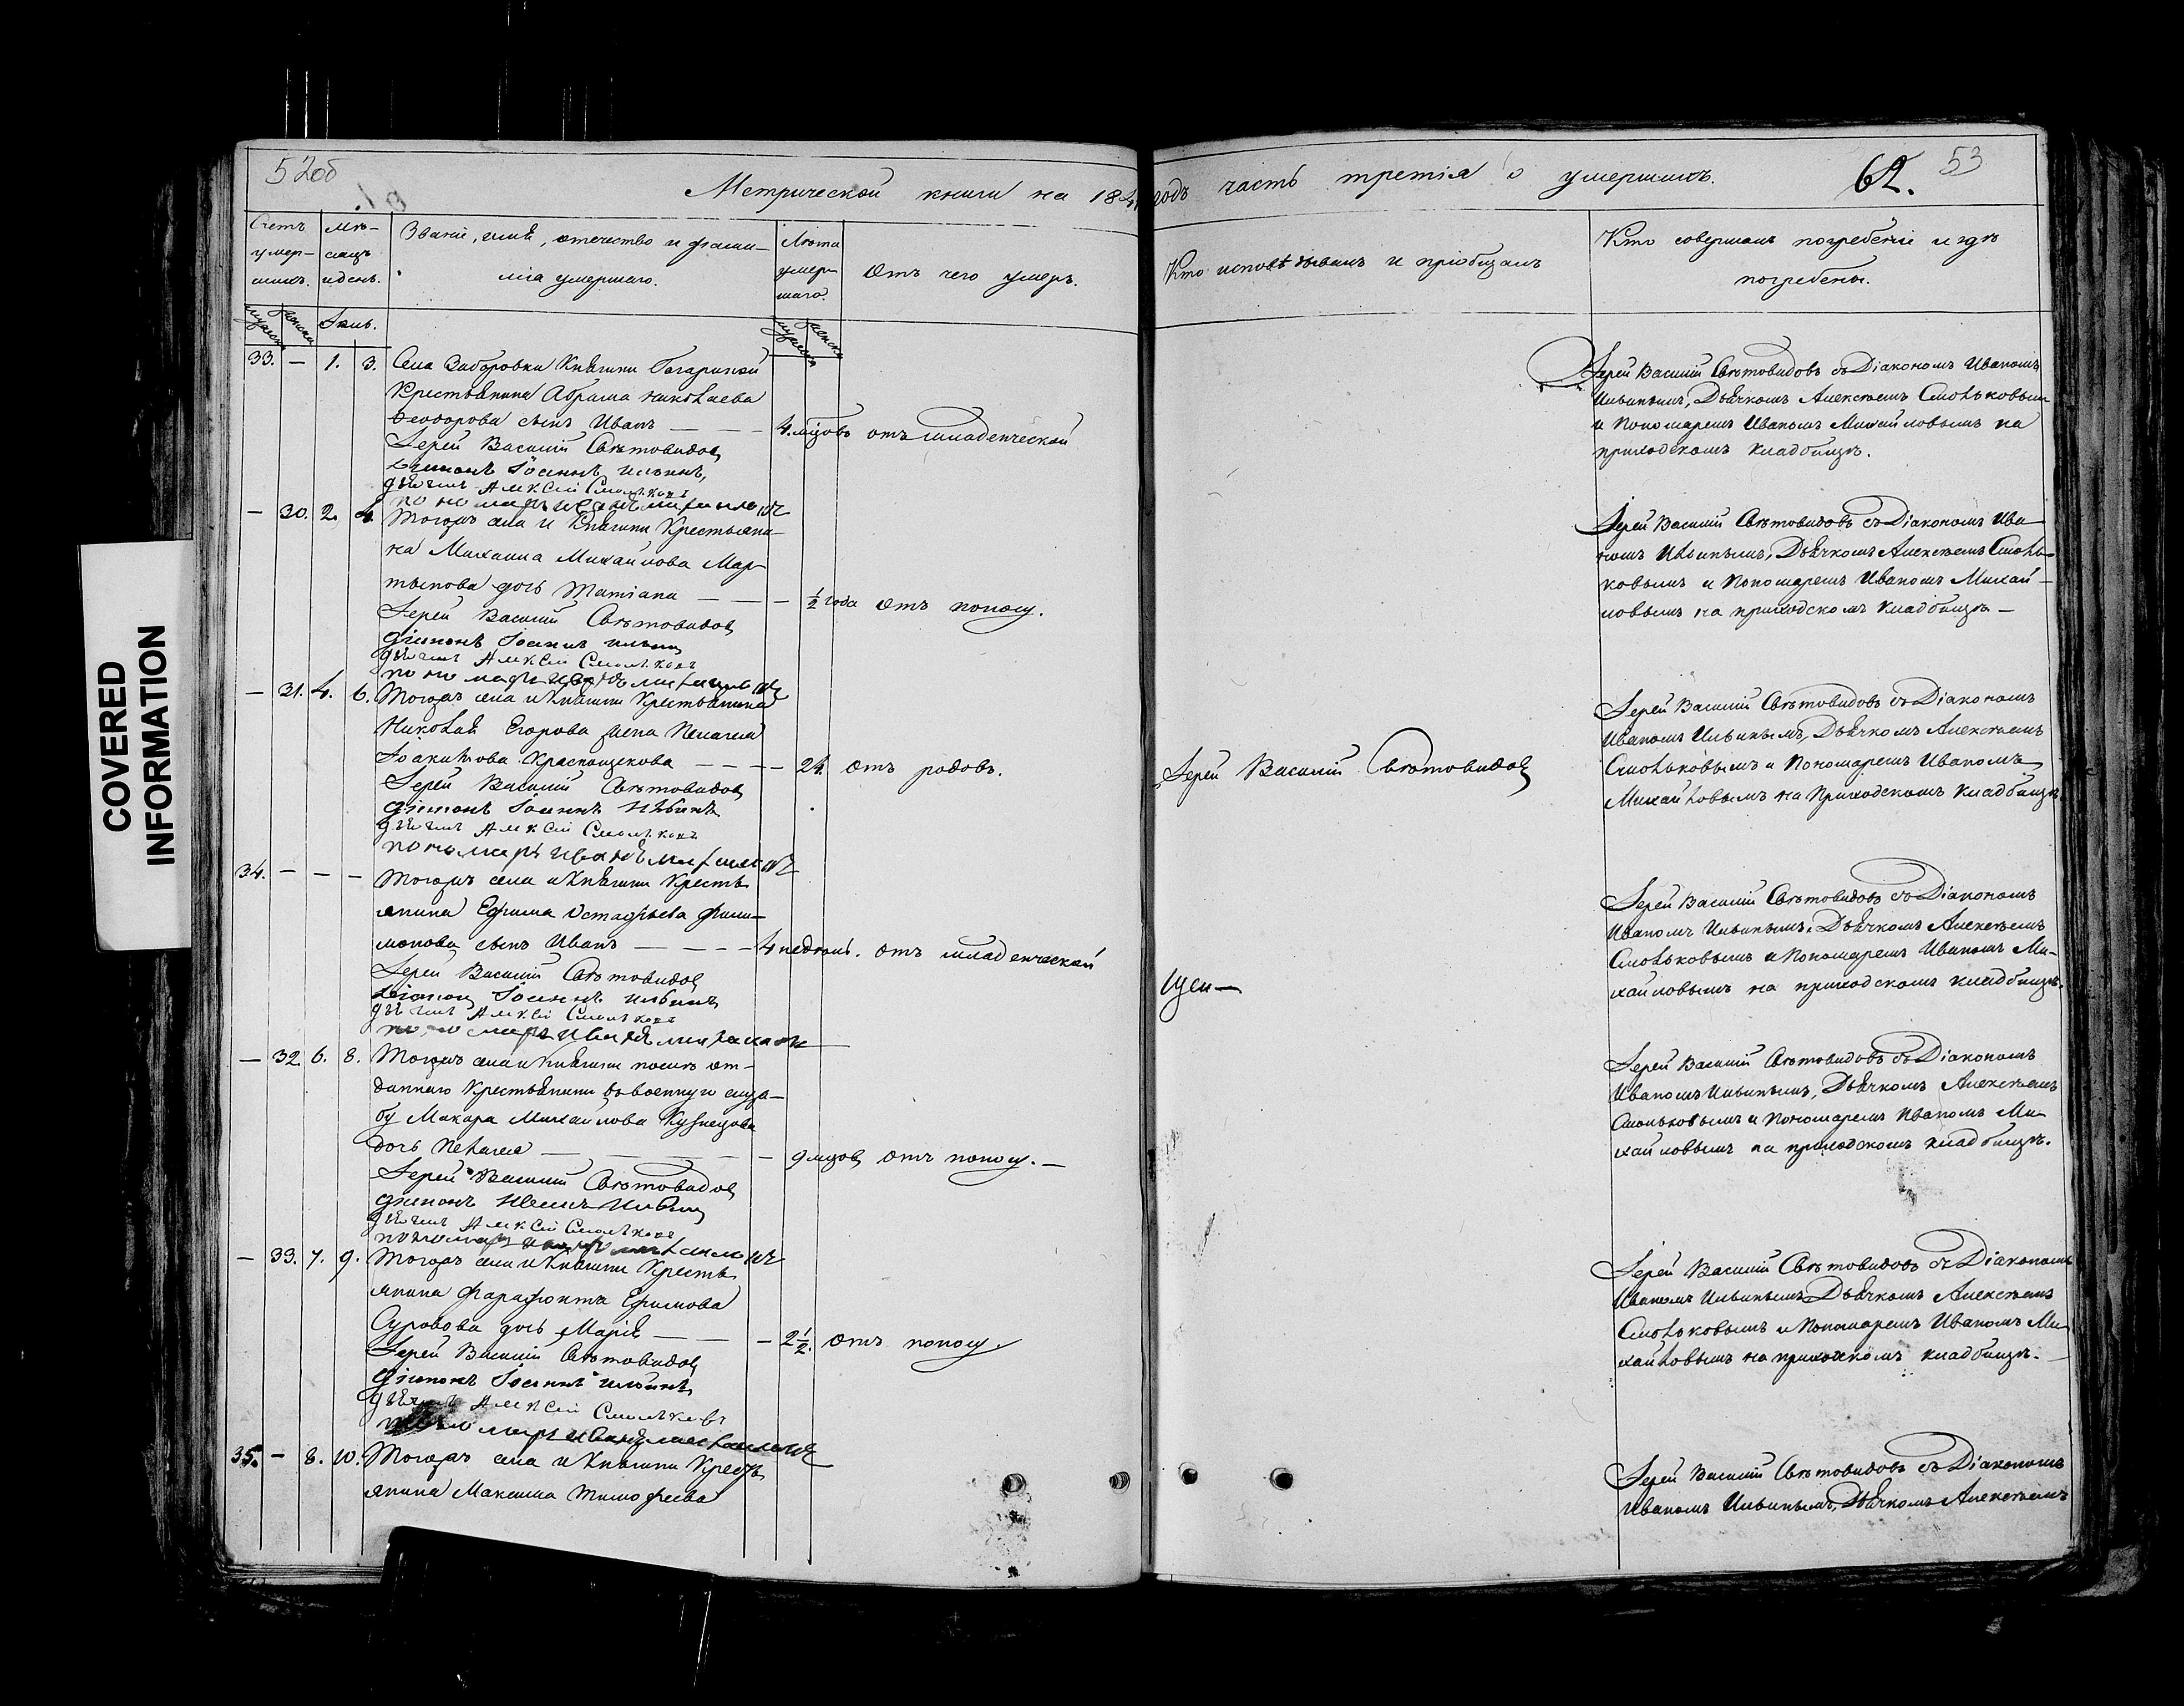 52об
Метрической книги на 184
годъ часть третія о умершихъ.
62. 53
Счетъ умер-шихъ.
Мѣ-сяцъ и день.
Званіе, имя, отечество и фами-
лія умершаго.
Лѣта умер-шаго.
Отъ чего умеръ.
Кто исповѣдывалъ и пріобщалъ
Кто совершалъ погребеніе и гдѣ
погребены.
мужеска женска
Іюль.
мужеска женска
33. — 1. 3. Села Заборовки Княгини Гагариной
Крестьянина Абрама Николаева
Ѳеодорова сынъ Иванъ — — — 4. мцовъ отъ младенческой
Іерей Василій Свѣтовидовъ
Діаконъ Іоаннъ Ильинъ,
дьячекъ Алексей Смольковъ
пономарь Иванъ Михайловъ
Іерей Василій Свѣтовидовъ съ Діакономъ Иваномъ
Ильинымъ, Дьячкомъ Алексѣемъ Смольковымъ
и Пономаремъ Иваномъ Михайловымъ на
приходскомъ кладбищѣ.
— 30. 2. 4. Тогожъ села и Княгини Крестьяни-
на Михаила Михайлова Мар-
тынова дочь Татіана — — — ½ года отъ поносу.
Іерей Василій Свѣтовидовъ
Діаконъ Іоаннъ Ильинъ
дьячекъ Алексей Смольковъ
пономарь Иванъ Михайловъ
Іерей Василій Свѣтовидовъ съ Діакономъ Ива-
номъ Ильинымъ, Дьячкомъ Алексѣемъ Смоль-
ковымъ и Пономаремъ Иваномъ Михай-
ловымъ на приходскомъ кладбищѣ —
— 31. 4. 6. Тогожъ села и Княгини Крестьянина
Николая Егорова жена Пелагея
Іоакимова Краснощекова — — — — 24. отъ родовъ.
Іерей Василій Свѣтовидовъ
Діаконъ Іоаннъ Ильинъ
дьячекъ Алексей Смольковъ
пономарь Иванъ Михайловъ
Іерей Василій Свѣтовидовъ
Іерей Василій Свѣтовидовъ съ Діакономъ
Иваномъ Ильинымъ, Дьячкомъ Алексѣемъ
Смольковымъ и Пономаремъ Иваномъ
Михайловымъ на Приходскомъ кладбищѣ.
34. — — — Тогожъ села и Княгини Кресть
янина Ефима Остафьева Фили-
монова сынъ Иванъ — — — — 4 недѣль. отъ младенческой
Іерей Василій Свѣтовидовъ
Діаконъ Іоаннъ Ильинъ
дьячекъ Алексей Смольковъ
пономарь Иванъ Михайловъ
Іерей Василій Свѣтовидовъ съ Діакономъ
Иваномъ Ильинымъ, Дьячкомъ Алексѣемъ
Смольковымъ и Пономаремъ Иваномъ Ми-
хайловымъ на приходскомъ кладбищѣ.
— 32. 6. 8. Тогожъ села и Княгини послѣ от-
даннаго Крестьянина въ военную служ-
бу Макара Михайлова Кузнецова
дочь Пелагея — — — — — 9 мцовъ отъ поносу. —
Іерей Василій Свѣтовидовъ
Діаконъ Иоаннъ Ильинъ
дьячекъ Алексей Смольковъ
пономарь Иванъ Михайловъ
Іерей Василій Свѣтовидовъ съ Діакономъ
Иваномъ Ильинымъ, Дьячкомъ Алексѣемъ
Смольковымъ и Пономаремъ Иваномъ Ми-
хайловымъ на приходскомъ кладбищѣ.
— 33. 7. 9. Тогожъ села и Княгини Кресть
янина Фарафонта Ефимова
Суровова дочь Марія — — — 2½. отъ поносу.
Іерей Василій Свѣтовидовъ
Діаконъ Іоаннъ Ильинъ
дьячекъ Алексей Смольковъ
пономарь Иванъ Михайловъ
Іерей Василій Свѣтовидовъ съ Діакономъ
Иваномъ Ильинымъ Дьячкомъ Алексѣемъ
Смольковымъ и Пономаремъ Иваномъ Ми-
хайловымъ на приходскомъ кладбищѣ. —
35. — 8. 10. Тогожъ села и Княгини Кресть
янина Максима Тимофеева
Іерей Василій Свѣтовидовъ съ Діакономъ
Иваномъ Ильинымъ, Дьячкомъ Алексѣемъ
COVERED
INFORMATION